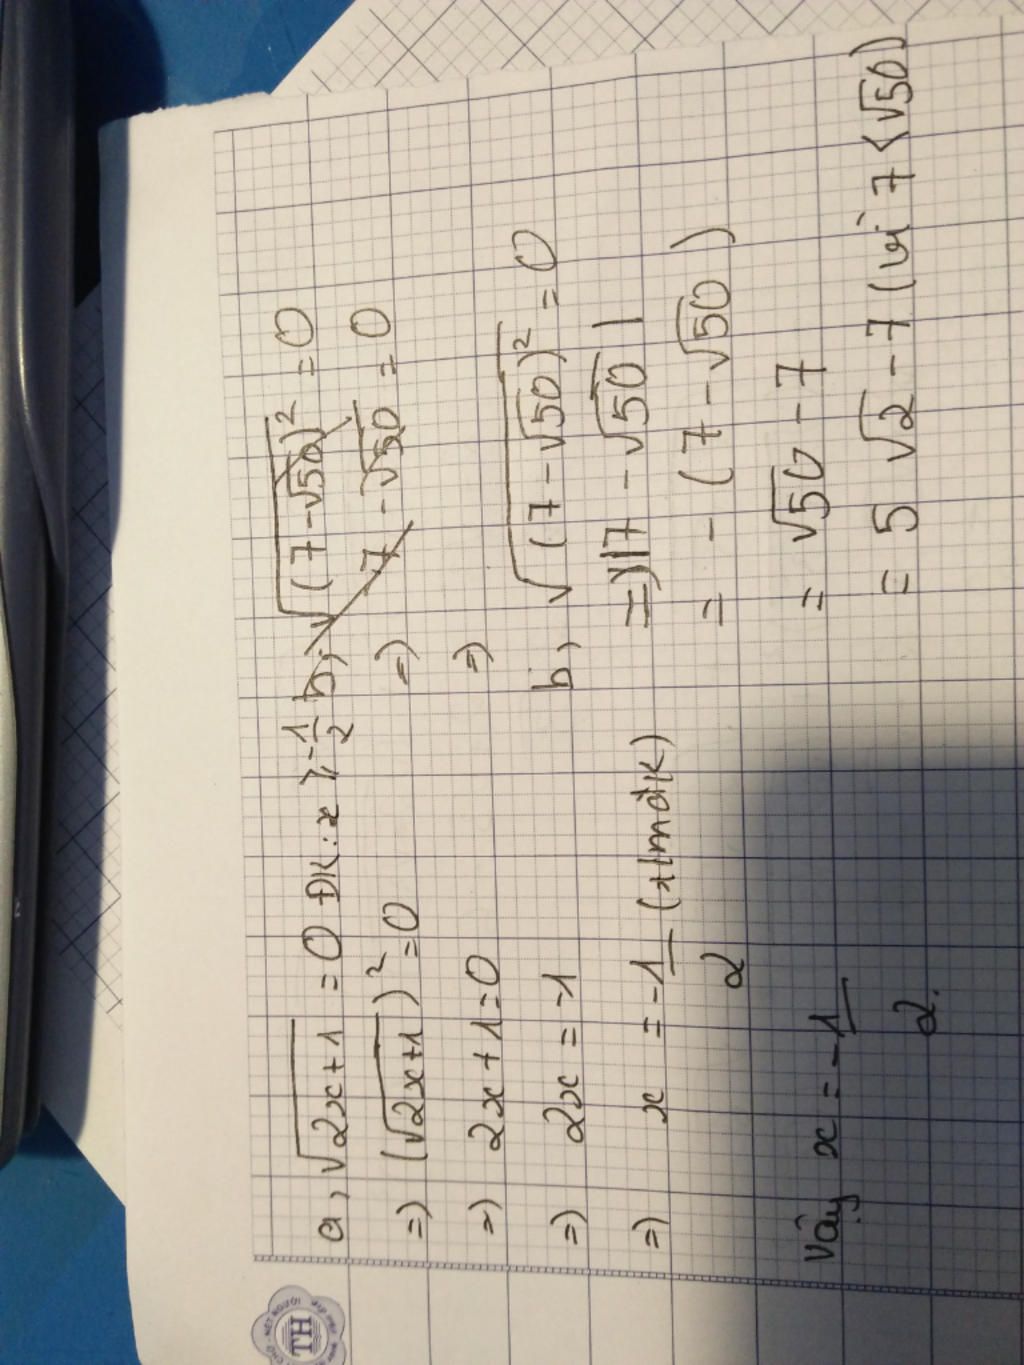 a, √2x+1 = 0 ĐK: x ⩾ -1/2
=) (√2x+1)² = 0
=) 2x+1=0
=) 2x = -1
=) x = -1/2 (xtmđk)
Vậy x = -1/2.
b, √(7-√50)² = 0
=) 7 - √50 = 0
=)
b, √(7-√50)² = 0
=) |7 - √50|
= - (7 - √50)
= √50 - 7
= 5 √2 - 7 (vì 7 < √50)
TH